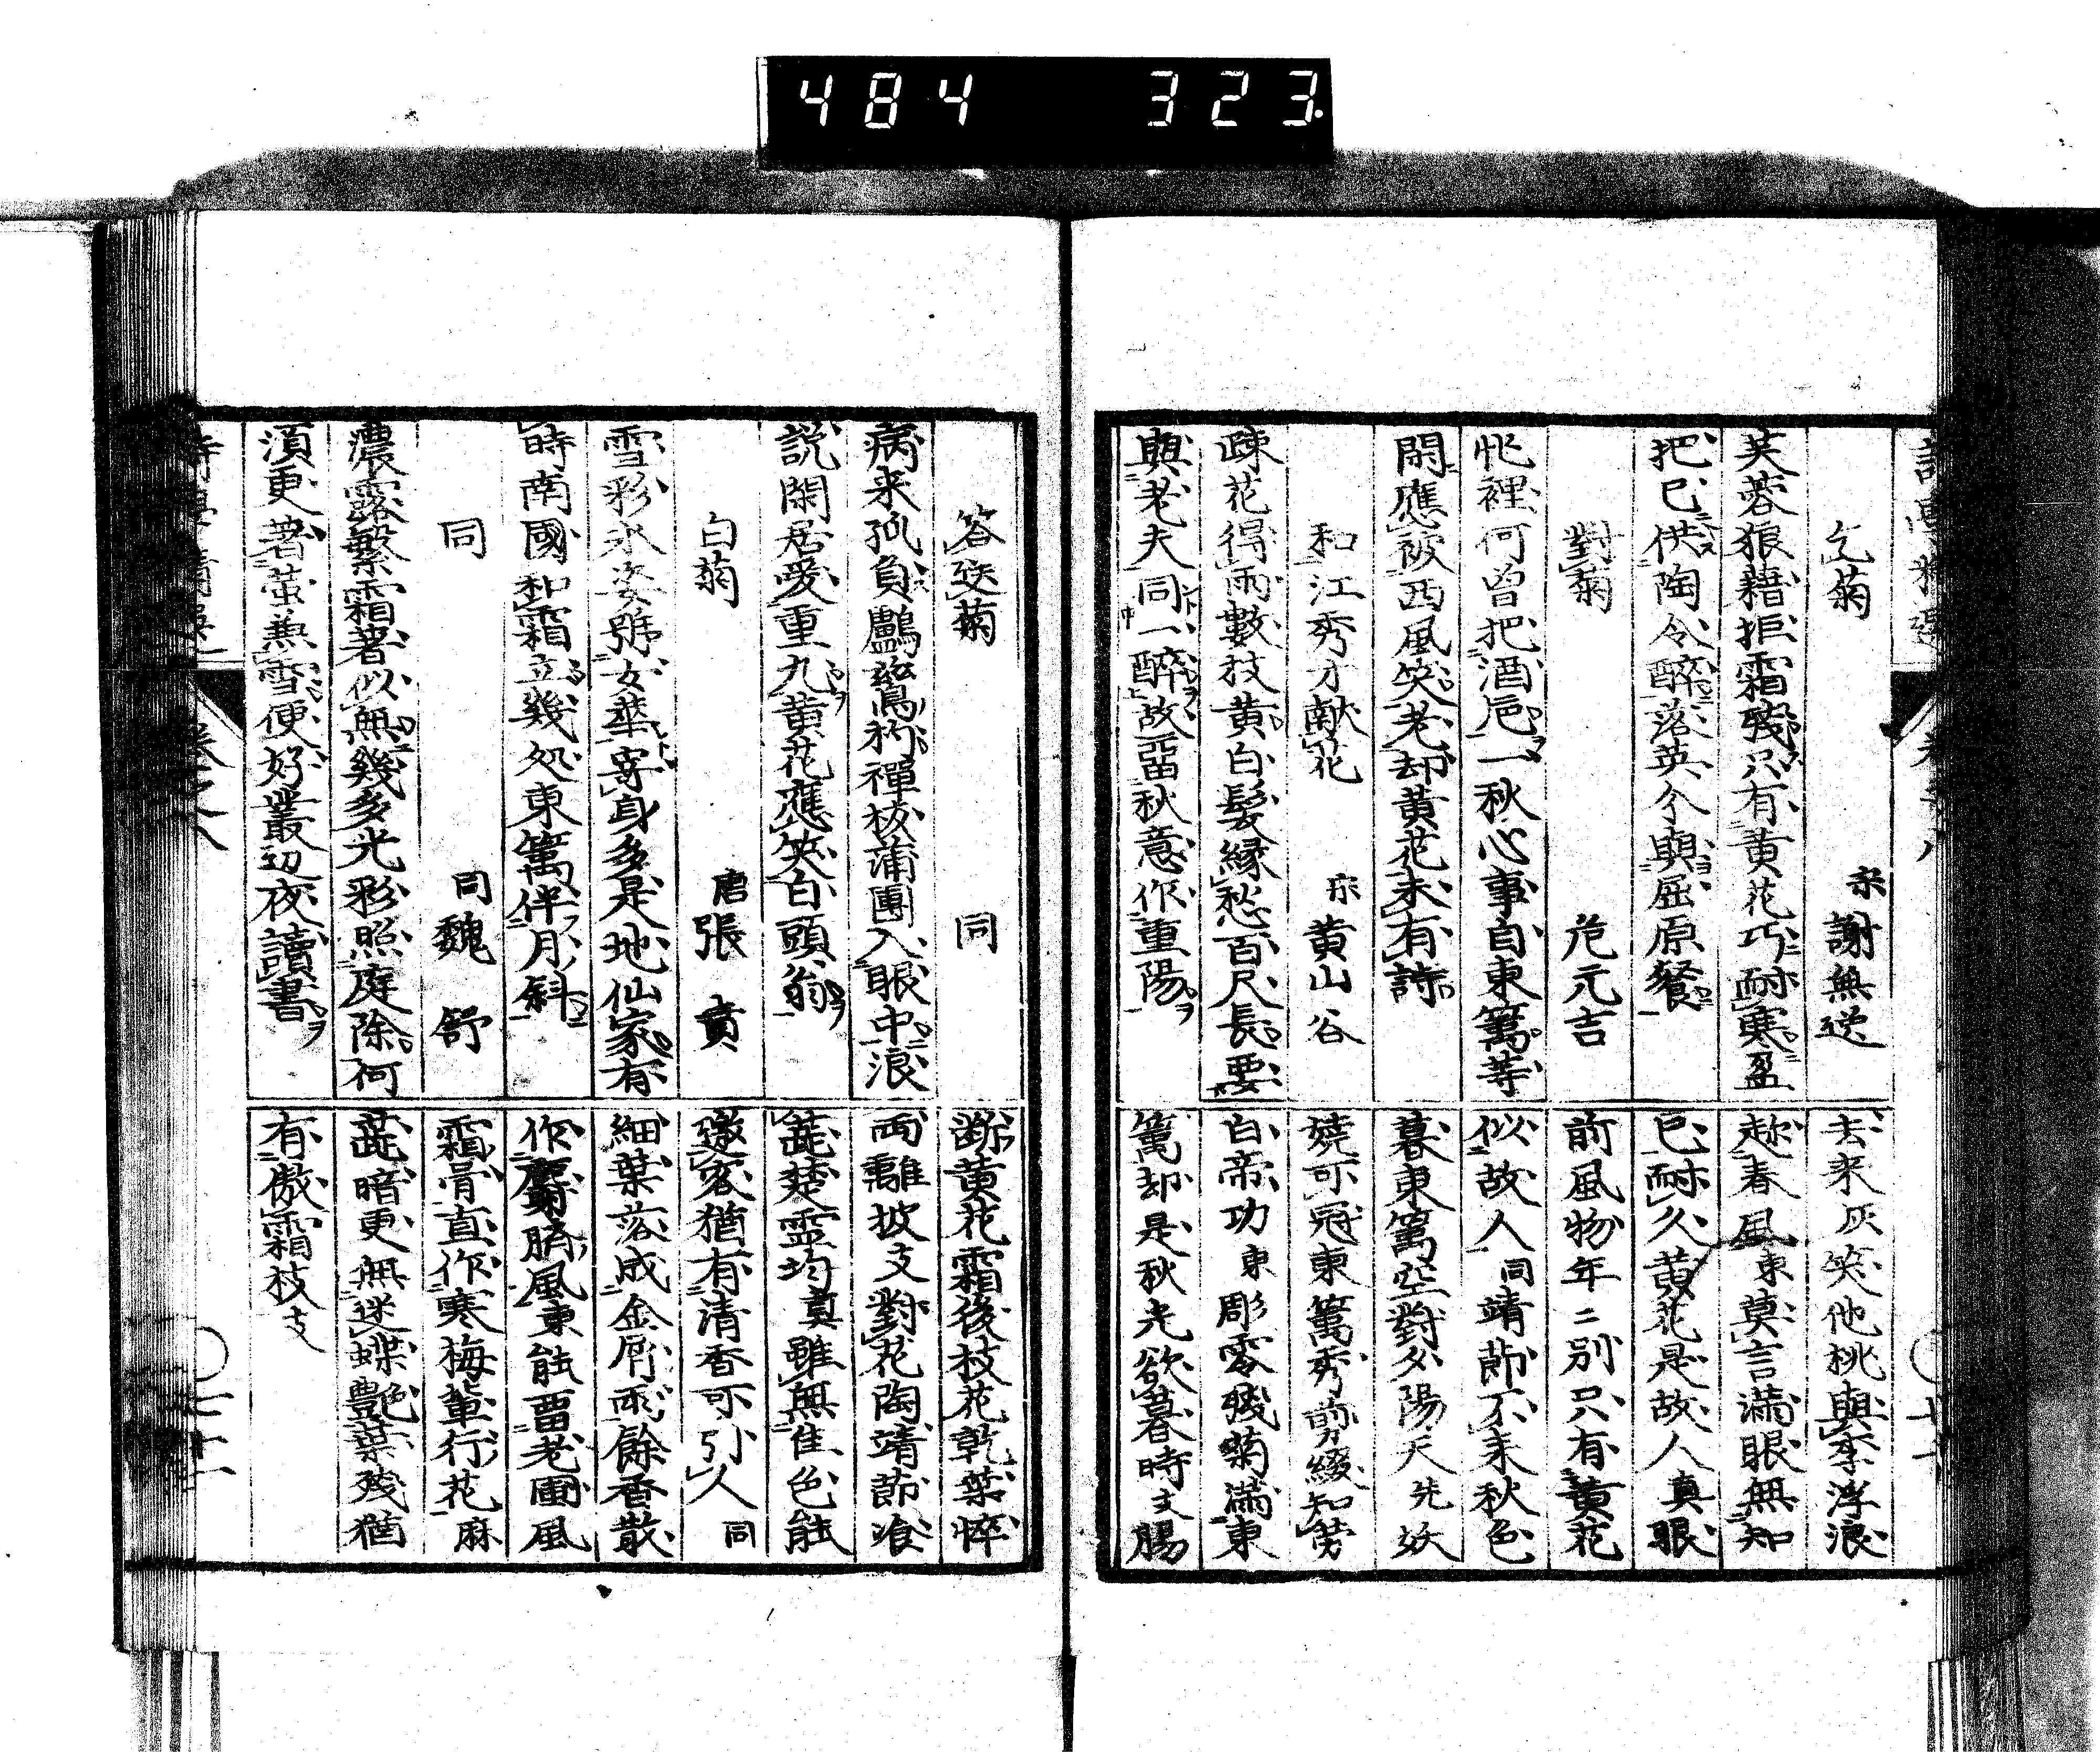 484 323
乞菊 宋 謝無逆
芙蓉狼藉拒霜殘只有黄花巧耐寒盈
把已供陶令醉落英今與屈原餐
對菊 范元吉
忙裡何曽把酒巵一秋心事自東篱等
閑應被西風笑老却黄花未有詩
和江秀才献花 宋 黄山谷
疎花得雨數枝黄白髪縁愁百尺長要
與老夫同一醉故畱秋意作重陽
去来灰笑他桃與李浮浪
趂春風東莫言滿眼無知
已耐久黄花是故人真眼
前風物年〻別只有黄花
似故人同靖節不来秋色
暮東篱空對夕陽天先妖
嬈可冠東篱秀剪綴知劳
白帝功東彫零殘菊滿東
篱却是秋光欲暮時支腸
答送菊 同
病来孤負鸕鶿杓禅板蒲團入眼中浪
説閑居愛重九黄花應笑白頭翁
白菊 唐 張賁
雪彩氷姿號女華寄身多是地仙家有
時南國和霜立幾処東篱伴月斜
同 同 魏舒
濃露繁霜著似無幾多光彩照庭除何
須更著蛍兼雪便好叢辺夜讀書
断黄花霜後枝花乾葉悴
両離披支對花陶靖節飡
英楚霊均真雖無佳色能
邀客猶有清香可引人同
細葉落成金屑雨餘香散
作麝臍風東能畱老圃風
霜骨直作寒梅輩行花麻
蔬暗更無迷蝶艶葉殘猶
有傲霜枝支
巻之八